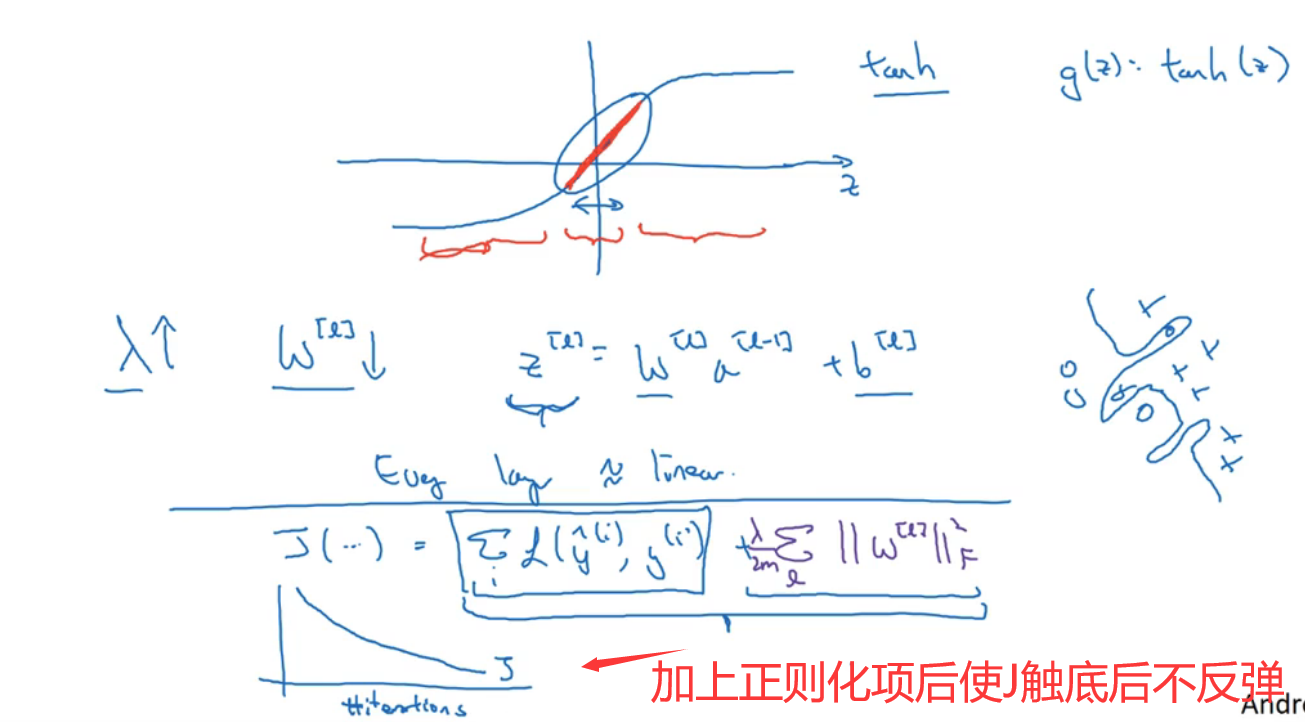 tanh g(z) = tanh(z)
z
λ↑ W^[l]↓ z^[l] = W^[l] a^[l-1] + b^[l]
Every layer ≈ linear.
J(…) = Σ_i L(ŷ^(i), y^(i)) + λ/2m Σ_l ||W^[l]||²_F
J
#iterations
加上正则化项后使J触底后不反弹
Andre